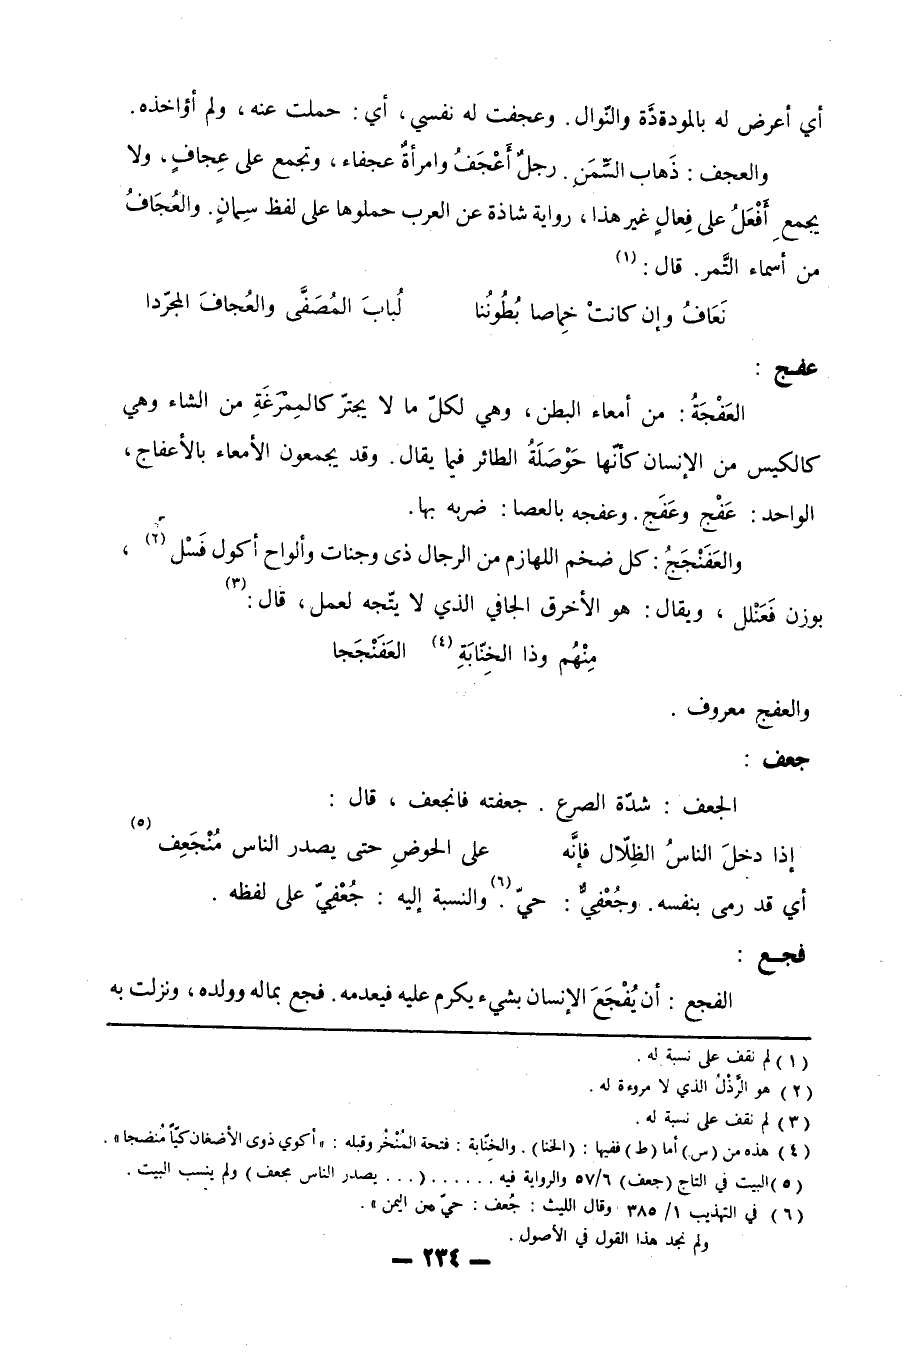 أي أعرض له بالمودةدَّة والنّوال. وعجفت له نفسي، أي: حملت عنه، ولم أؤاخذه.
والعجف: ذَهاب السِّمَنِ. رجلٌ أَعْجَفُ وامرأةٌ عجفاء، وتجمع على عِجافٍ، ولا
يجمع أَفْعَلُ على فِعالٍ غير هذا، رواية شاذة عن العرب حملوها على لفظ سِمانٍ. والعُجَافُ
من أسماء التَّمر. قال: (١)
نَعَافُ وإن كانتْ خِماصا بُطُونُنا لُبابَ المُصَفَّى والعُجافَ المجرّدا
عفـج :
العَفْجَةُ: من أمعاء البطن، وهي لكلّ ما لا يجترّ كالمِمْرَغَةِ من الشاء وهي
كالكيس من الإنسان كأنّها حَوْصَلَةُ الطائر فيما يقال. وقد يجمعون الأمعاء بالأعفاج،
الواحد: عَفْج وعَفَج. وعفجه بالعصا: ضربه بها.
والعَفَنْجَجُ: كل ضخم اللهازم من الرجال ذى وجنات وألواح أكول فَسْل (٢) ،
بوزن فَعَنْلل ، ويقال: هو الأخرق الجافي الذي لا يتّجه لعمل، قال: (٣)
مِنْهُم وذا الخِنّابَةِ (٤) العَفَنْجَجا
والعفج معروف .
جعف :
الجعف : شدّة الصرع . جعفته فانجعف ، قال :
إذا دخلَ الناسُ الظِلّال فإنَّه على الحوضِ حتى يصدر الناس مُنْجَعِف (٥)
أي قد رمى بنفسه. وجُعْفِيٌّ: حيّ (٦). والنسبة إليه : جُعْفِيّ على لفظه .
فجـع :
الفجع : أن يُفْجَعَ الإنسان بشيء يكرم عليه فيعدمه. فجع بماله وولده، ونزلت به
(١) لم نقف على نسبة له .
(٢) هو الرَّذْلُ الذي لا مروءة له .
(٣) لم نقف على نسبة له .
(٤) هذه من (س) أما (ط) ففيها : (الخنا) . والخِنّابة : فتحة المُنْخُر وقبله : «أكوي ذوى الأضغان كيّاً مُنضجا» .
(٥) البيت في التاج (جعف) ٥٧/٦ والرواية فيه ...... (... يصدر الناس مجعف) ولم ينسب البيت .
(٦) في التهذيب ١/ ٣٨٥ وقال الليث : جُعف : حيّ من اليمن» .
ولم نجد هذا القول في الأصول .
— ٢٣٤ —